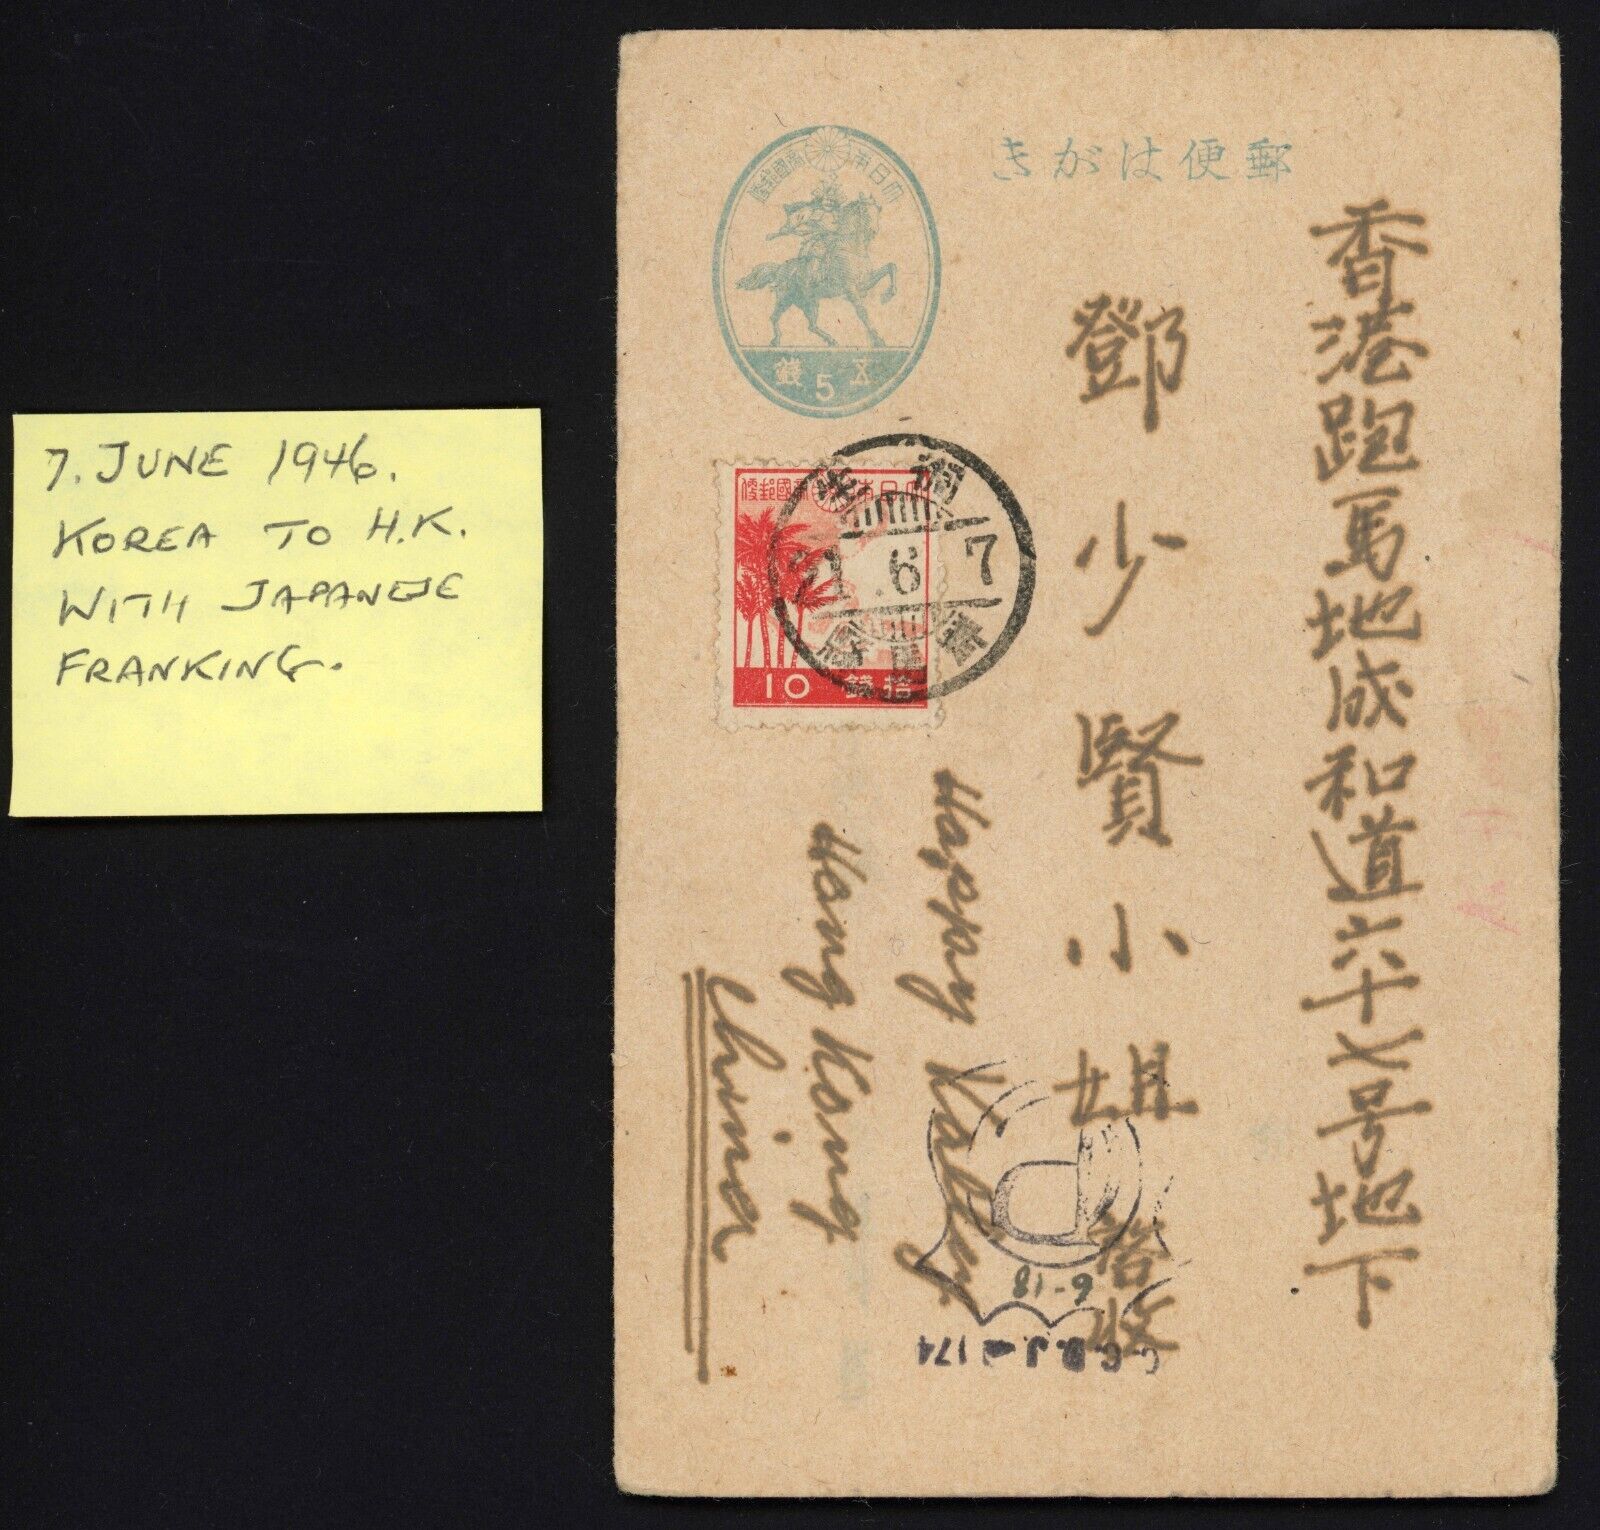 7. JUNE 1946.
KOREA TO H.K.
WITH JAPANESE
FRANKING.
郵便はがき
大日本帝國郵便
五 5 錢
大日本帝國郵便
拾錢 10
21.6.7
香港跑馬地成和道六十七号地下
鄧少賢小姐
啓收
Happy Valley
Hong Kong
China
P
6-18
C.C.D.J-2174